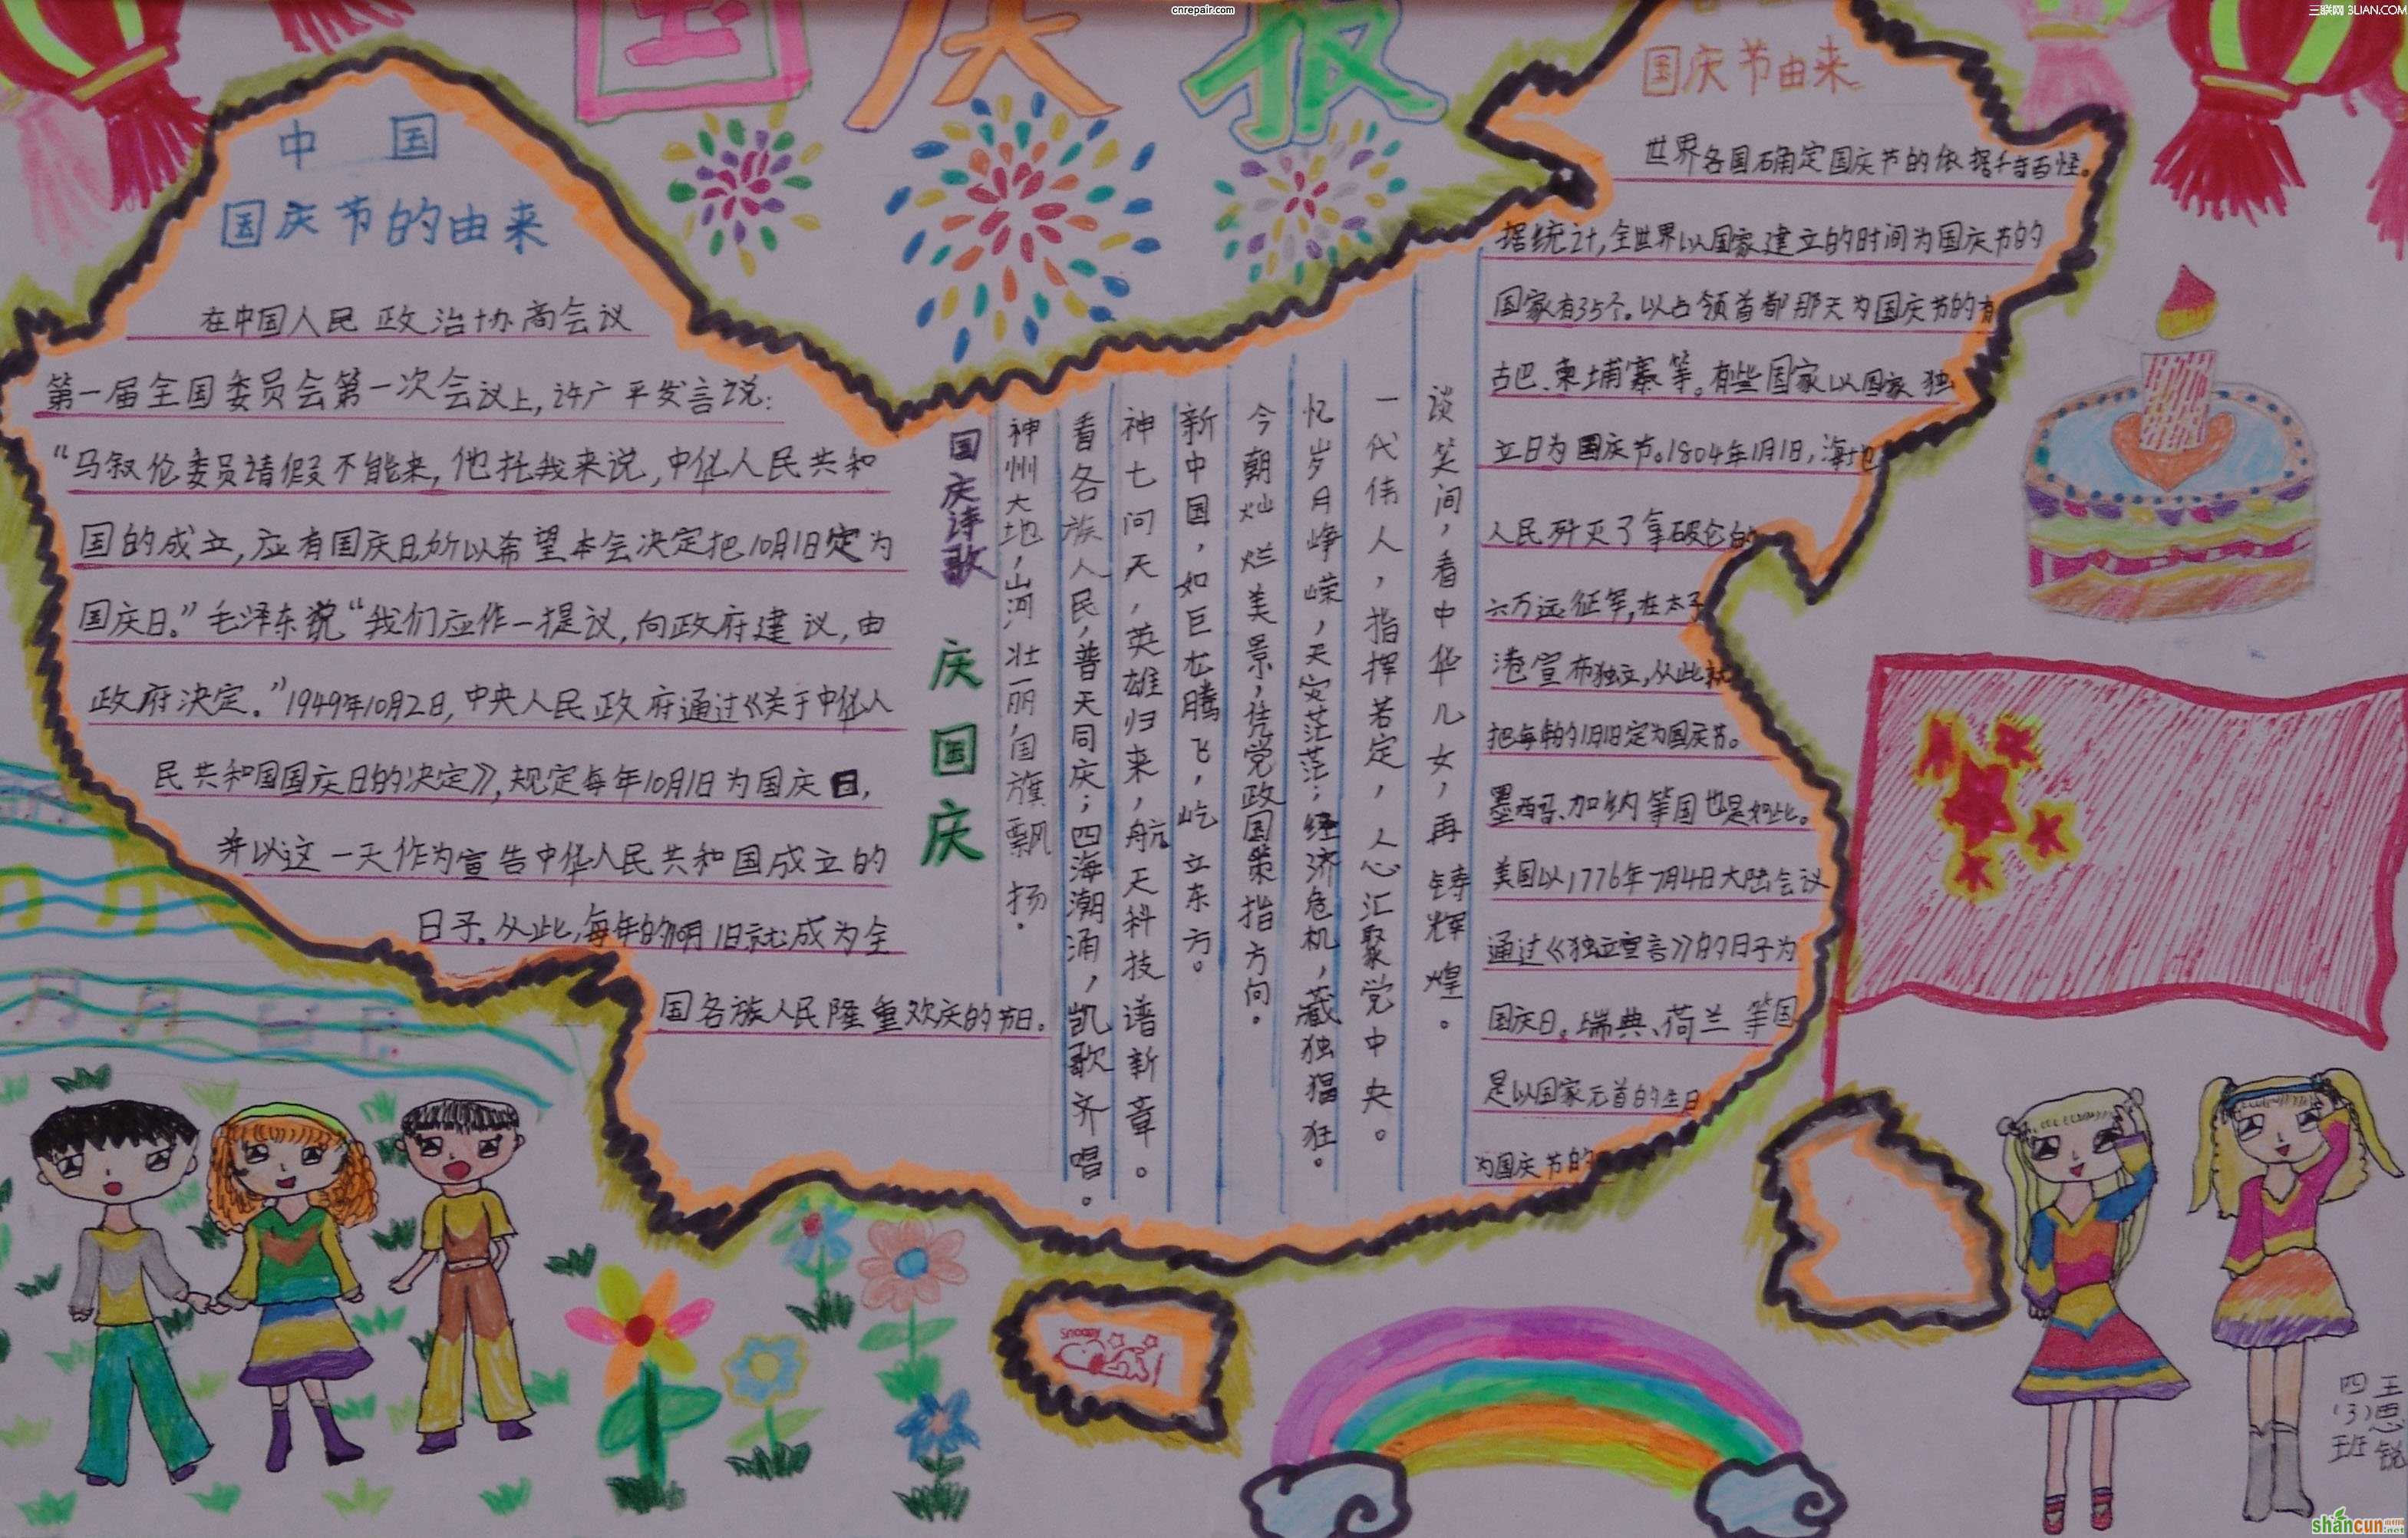 cnrepair.com
三联网 3LIAN.COM
国庆报
中 国
国庆节的由来
在中国人民政治协商会议
第一届全国委员会第一次会议上,许广平发言说:
“马叙伦委员请假不能来,他托我来说,中华人民共和
国的成立,应有国庆日,所以希望本会决定把10月1日定为
国庆日。”毛泽东说“我们应作一提议,向政府建议,由
政府决定。”1949年10月2日,中央人民政府通过《关于中华人
民共和国国庆日的决定》,规定每年10月1日为国庆日,
并以这一天作为宣告中华人民共和国成立的
日子。从此,每年的10月1日就成为全
国各族人民隆重欢庆的节日。
国庆诗歌 庆国庆
神州大地,山河壮丽,国旗飘扬.
看各族人民,普天同庆;四海潮涌,凯歌齐唱。
神七问天,英雄归来,航天科技谱新章。
新中国,如巨龙腾飞,屹立东方。
今朝灿烂美景,凭党政国策指方向.
忆岁月峥嵘,天灾茫茫;经济危机,藏独猖狂.
一代伟人,指挥若定,人心汇聚党中央。
谈笑间,看中华儿女,再铸辉煌。
国庆节由来
世界各国确定国庆节的依据千奇百怪。
据统计,全世界以国家建立的时间为国庆节的
国家有35个。以占领首都那天为国庆节的有
古巴、柬埔寨等。有些国家以国家独
立日为国庆节。1804年1月1日,海地
人民歼灭了拿破仑的
六万远征军,在太子
港宣布独立,从此就
把每年的1月1日定为国庆节。
墨西哥、加纳等国也是如此。
美国以1776年7月4日大陆会议
通过《独立宣言》的日子为
国庆日。瑞典、荷兰等国
是以国家元首的生日
为国庆节的
Snoopy
四(3)班
王思锐
shancun